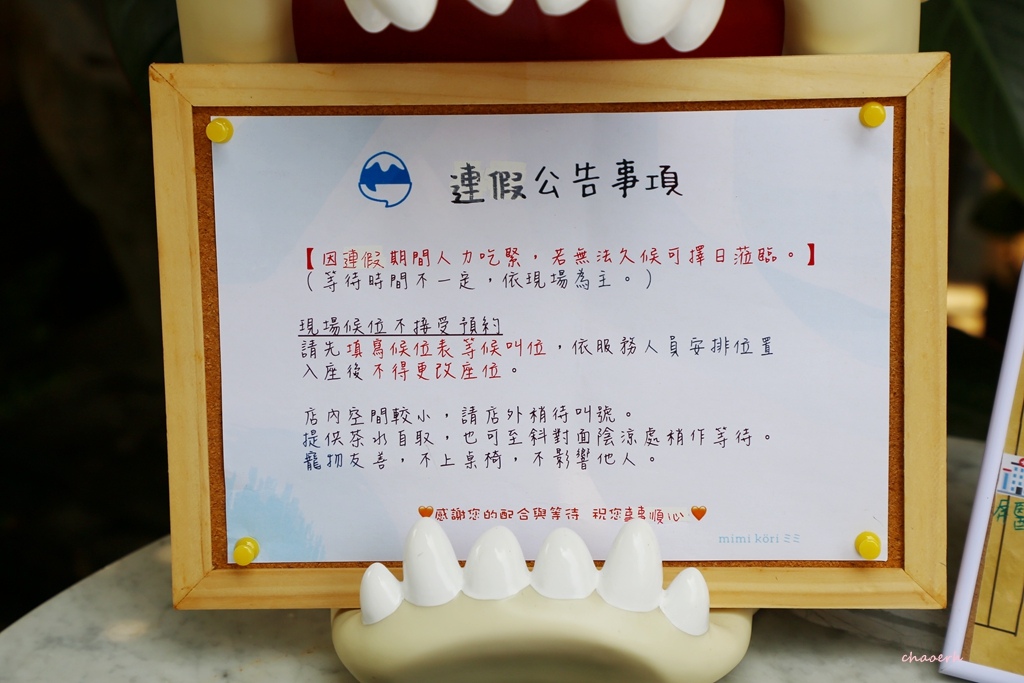 連假公告事項
【因連假期間人力吃緊,若無法久候可擇日蒞臨。】
(等待時間不一定,依現場為主。)
現場候位不接受預約
請先填寫候位表等候叫位,依服務人員安排位置
入座後不得更改座位。
店內空間較小,請店外稍待叫號。
提供茶水自取,也可至斜對面陰涼處稍作等待。
寵物友善,不上桌椅,不影響他人。
🧡感謝您的配合與等待 祝您事事順心🧡
mimi köri ミミ